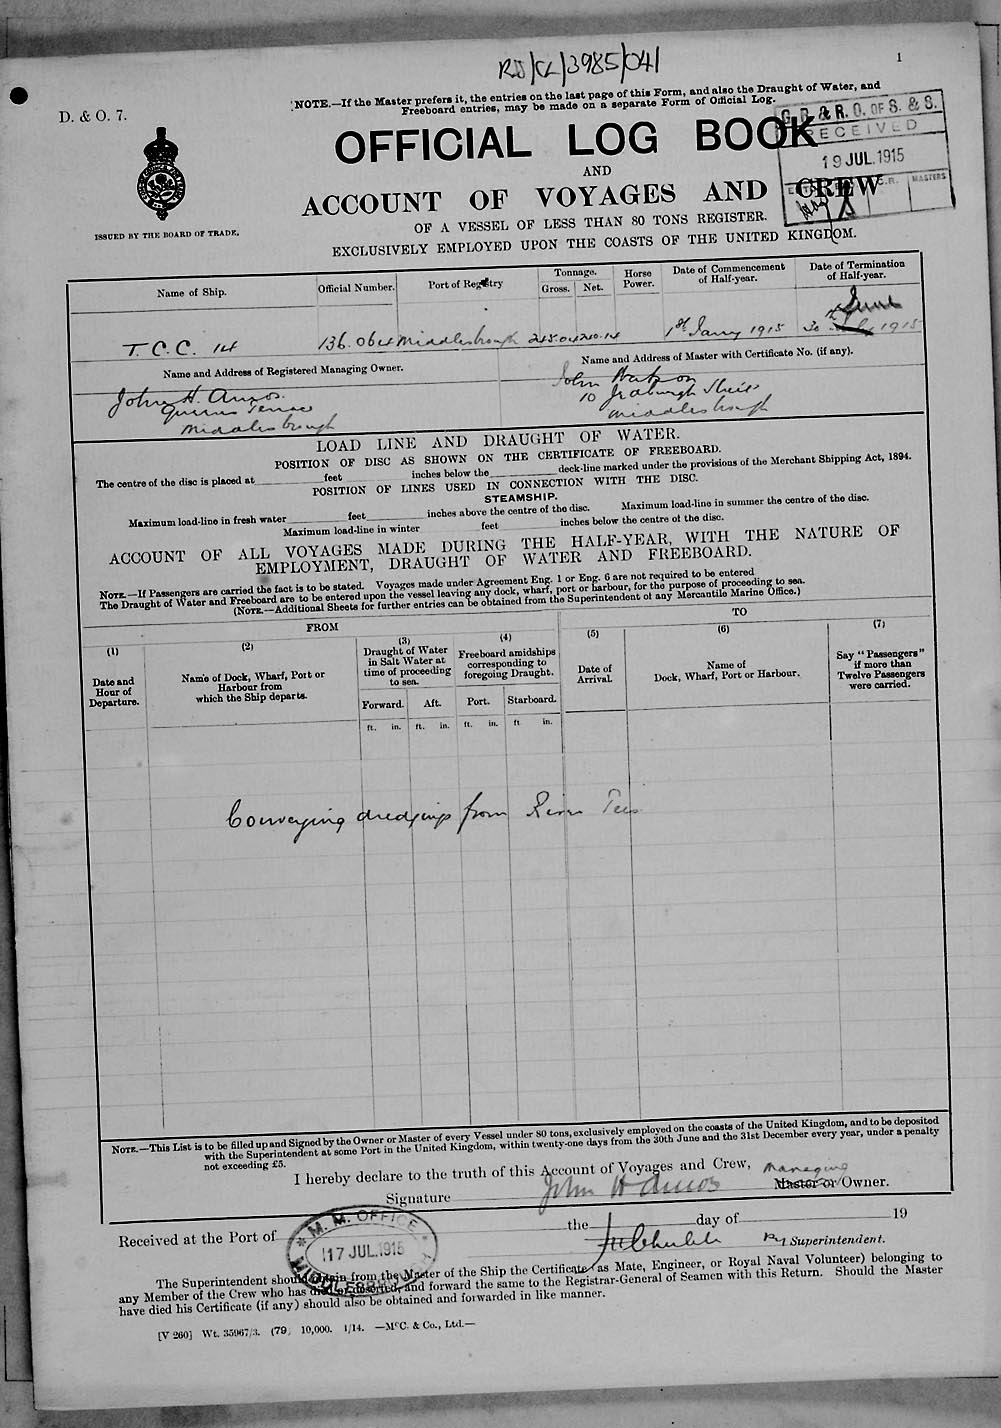 RSS/CL/3985/041
1
D. & O. 7.
NOTE.—If the Master prefers it, the entries on the last page of this Form, and also the Draught of Water, and
Freeboard entries, may be made on a separate Form of Official Log.
OFFICIAL LOG BOOK
AND
ACCOUNT OF VOYAGES AND CREW
OF A VESSEL OF LESS THAN 80 TONS REGISTER.
EXCLUSIVELY EMPLOYED UPON THE COASTS OF THE UNITED KINGDOM.
G. R. & R. O. OF S. & S.
RECEIVED
19 JUL. 1915
MASTERS
ISSUED BY THE BOARD OF TRADE.
Name of Ship. Official Number. Port of Registry Tonnage. Gross. Net. Horse Power. Date of Commencement of Half-year. Date of Termination of Half-year.
T. C. C. 14 136.064 Middlesbrough 245.04 240.14 1st Janry 1915 30th June 1915
Name and Address of Registered Managing Owner. Name and Address of Master with Certificate No. (if any).
John H. Amos. John Watson
Queens Terrace 10
Middlesbrough Middlesbrough
LOAD LINE AND DRAUGHT OF WATER.
POSITION OF DISC AS SHOWN ON THE CERTIFICATE OF FREEBOARD.
The centre of the disc is placed at feet inches below the deck-line marked under the provisions of the Merchant Shipping Act, 1894.
POSITION OF LINES USED IN CONNECTION WITH THE DISC.
STEAMSHIP.
Maximum load-line in fresh water feet inches above the centre of the disc. Maximum load-line in summer the centre of the disc.
Maximum load-line in winter feet inches below the centre of the disc.
ACCOUNT OF ALL VOYAGES MADE DURING THE HALF-YEAR, WITH THE NATURE OF
EMPLOYMENT, DRAUGHT OF WATER AND FREEBOARD.
NOTE.—If Passengers are carried the fact is to be stated. Voyages made under Agreement Eng. 1 or Eng. 6 are not required to be entered
The Draught of Water and Freeboard are to be entered upon the vessel leaving any dock, wharf, port or harbour, for the purpose of proceeding to sea.
(NOTE.—Additional Sheets for further entries can be obtained from the Superintendent of any Mercantile Marine Office.)
FROM TO
(1) (2) (3) (4) (5) (6) (7)
Date and Hour of Departure. Name of Dock, Wharf, Port or Harbour from which the Ship departs. Draught of Water in Salt Water at time of proceeding to sea. Freeboard amidships corresponding to foregoing Draught. Date of Arrival. Name of Dock, Wharf, Port or Harbour. Say "Passengers" if more than Twelve Passengers were carried.
Forward. Aft. Port. Starboard.
ft. in. ft. in. ft. in. ft in.
Conveying dredgings from River Tees
NOTE.—This List is to be filled up and Signed by the Owner or Master of every Vessel under 80 tons, exclusively employed on the coasts of the United Kingdom, and to be deposited
with the Superintendent at some Port in the United Kingdom, within twenty-one days from the 30th June and the 31st December every year, under a penalty
not exceeding £5.
I hereby declare to the truth of this Account of Voyages and Crew, Managing
Signature John H Amos Master or Owner.
Received at the Port of the day of 19
M. M. OFFICE
17 JUL. 1915
MIDDLESBROUGH
Superintendent.
The Superintendent should obtain from the Master of the Ship the Certificate (as Mate, Engineer, or Royal Naval Volunteer) belonging to
any Member of the Crew who has died or deserted, and forward the same to the Registrar-General of Seamen with this Return. Should the Master
have died his Certificate (if any) should also be obtained and forwarded in like manner.
[V 260] Wt. 35967/3. (79) 10,000. 1/14. —McC. & Co., Ltd.—